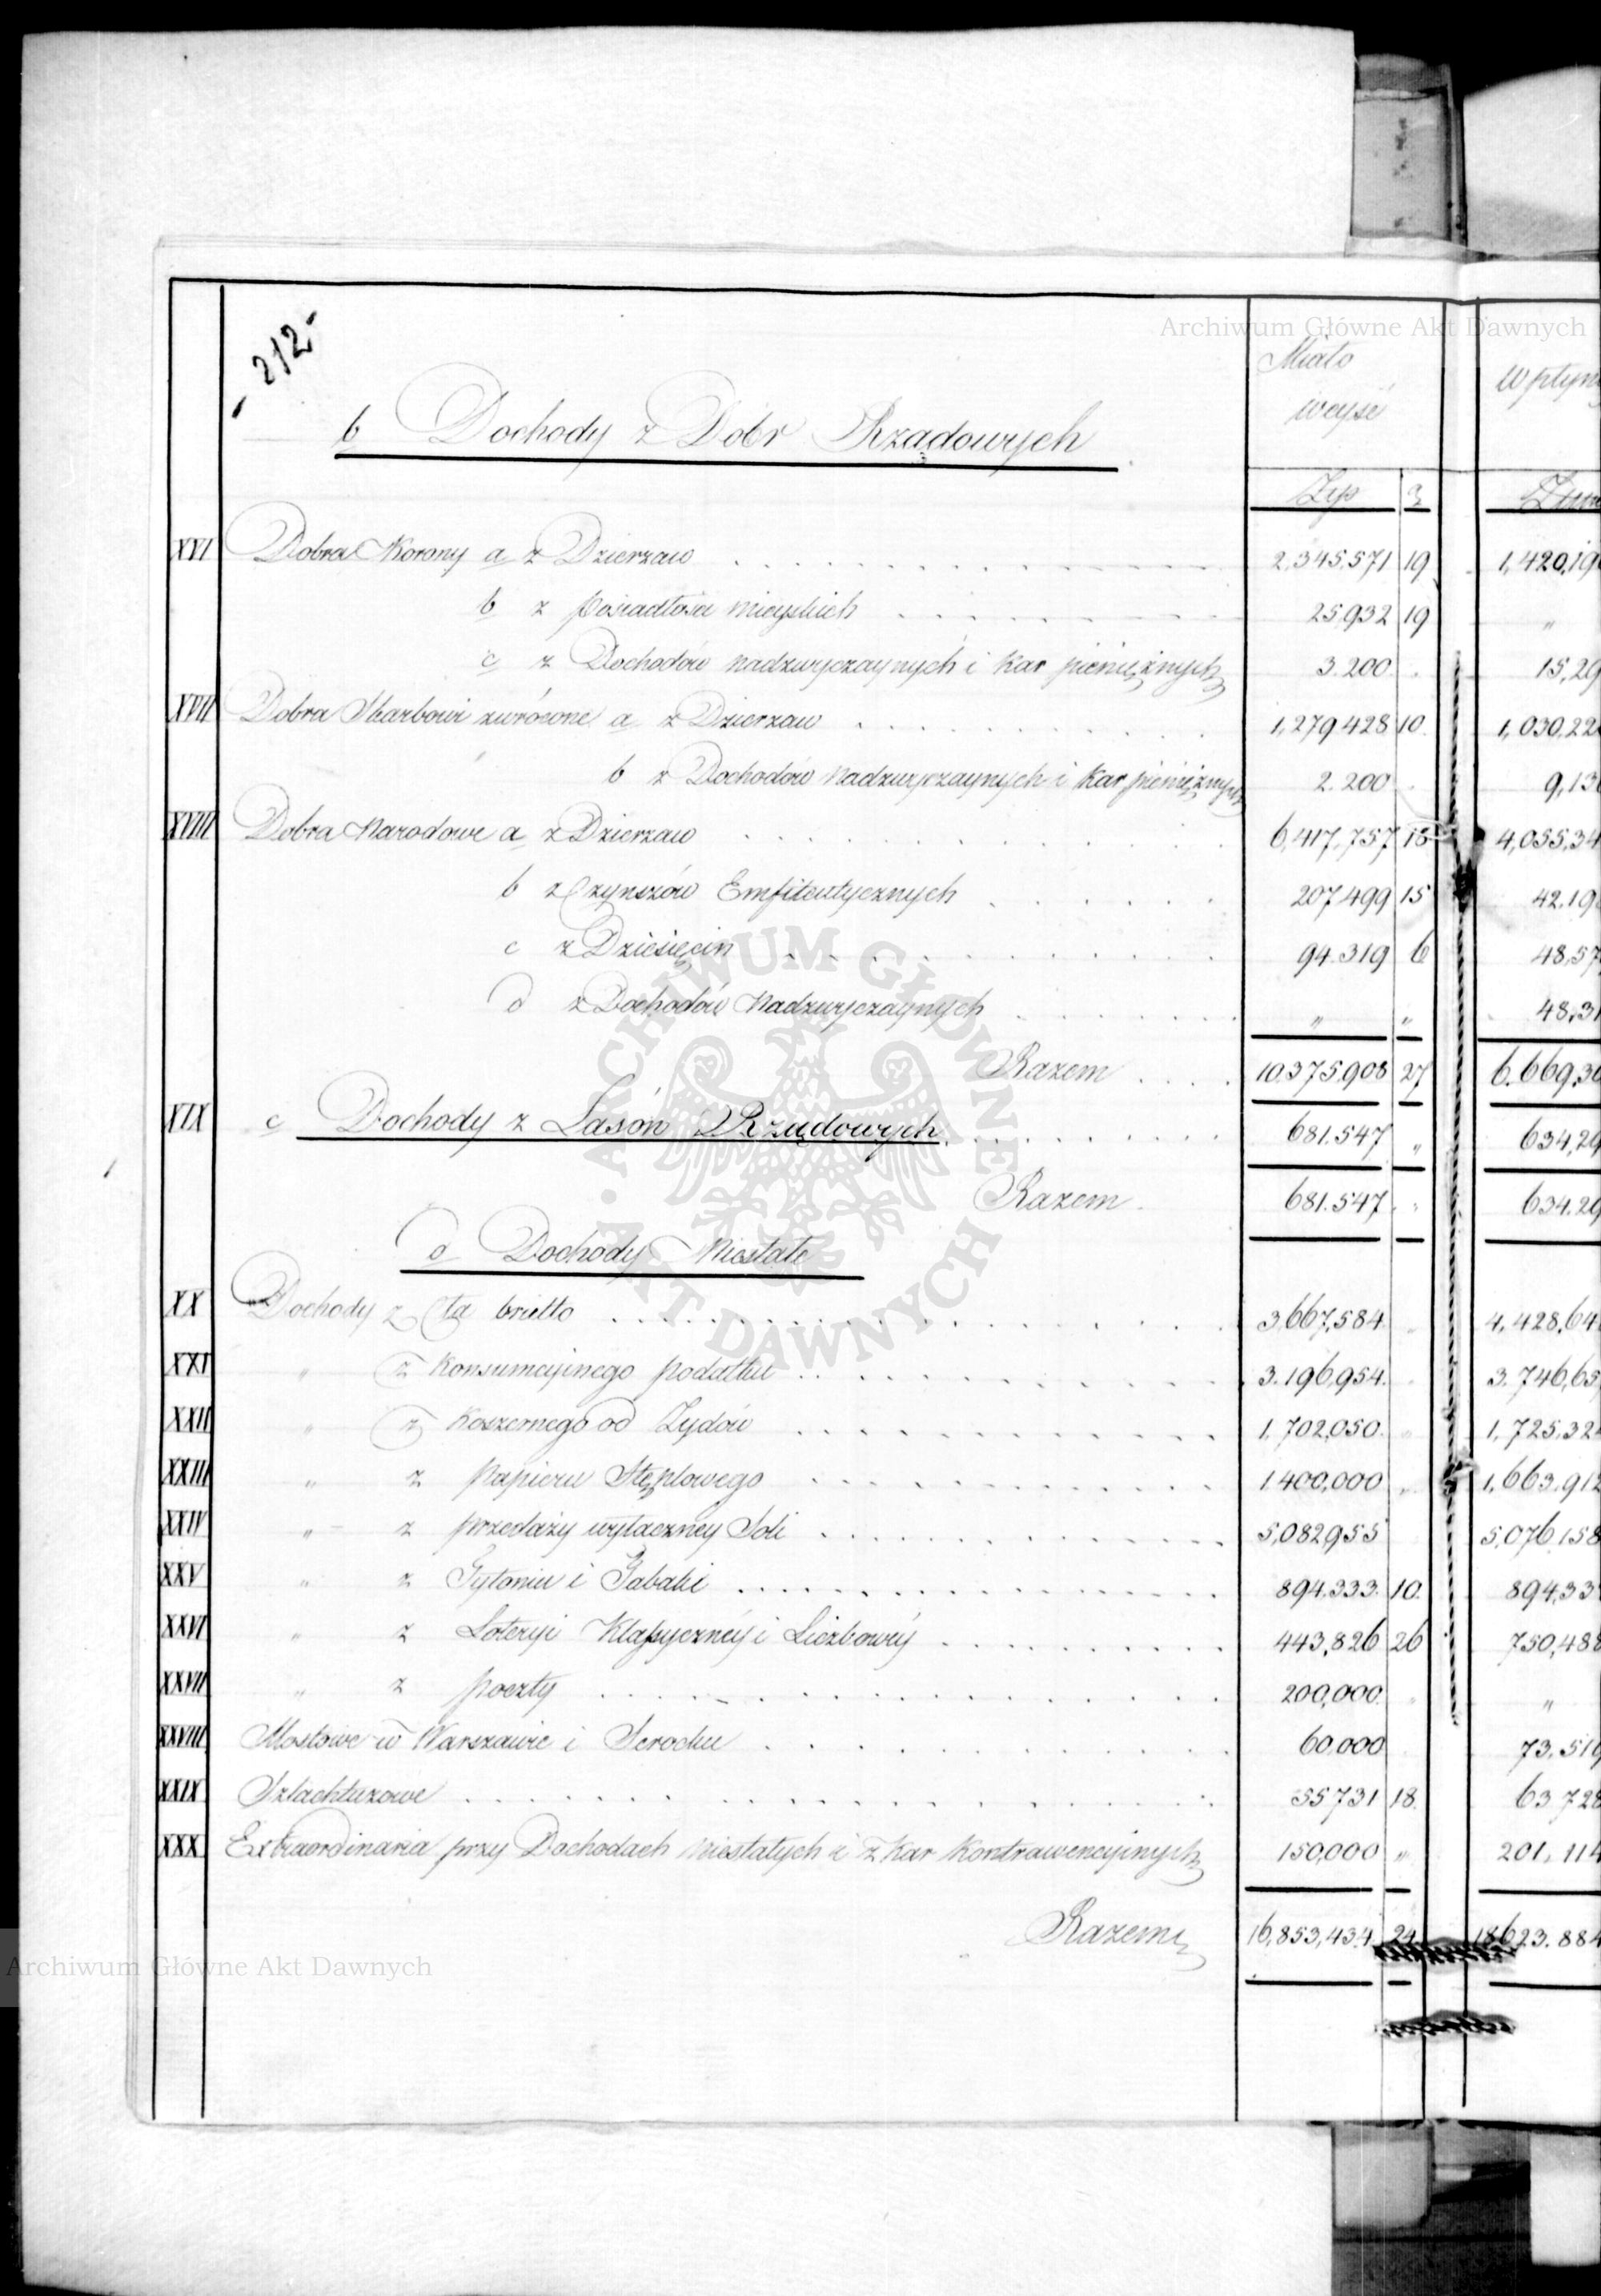 Archiwum Główne Akt Dawnych
- 212 -
Miało
weyść
Wpłyn
b Dochody z Dóbr Rządowych
Złp g
XVI Dobra Korony a z Dzierzaw . . . 2,345,571 19 1,420,19
b z posiadłości mieyskich . . . 25,932 19 "
c z Dochodów nadzwyczaynych i Kar pieniężnych 3.200 . 15,29
XVII Dobra Skarbowi zwrócone a z Dzierzaw . . . 1,279,428 10 1,030,22
b z Dochodów Nadzwyczaynych i Kar pieniężnych 2.200 . 9,13
XVIII Dobra Narodowe a z Dzierzaw . . . 6,417,757 18 4,055,34
b z Czynszów Emfiteutycznych . . . 207,499 15 42,19
c z Dziesięcin . . . 94.319 6 48,57
d z Dochodów Nadzwyczaynych . . . " " 48,31
Razem . . . 10,375,908 27 6,669,30
XIX c Dochody z Lasów Rządowych . . . 681.547 " 634,29
Razem 681.547 " 634.29
d Dochody Niestałe
XX Dochody z Cła brutto . . . 3,667,584 " 4,428,64
XXI " z Konsumcyinego podatku . . . 3.196,954. 3.746,65
XXII " z Koszernego od Żydów . . . 1,702,050 " 1,725,32
XXIII " z Papieru Stęplowego . . . 1.400,000 " 1,663.912
XXIV " z przedaży wyłaczney Soli . . . 5,082,955 5,076,158
XXV " z Tytoniu i Tabaki . . . 894.333. 10. 894,33
XXVI " z Loteryi Klassycznéy i Liczbowéy . . . 443,826 26 750,488
XXVII " z poczty . . . 200,000 " "
XXVIII Mostowe w Warszawie i Serocku . . . 60.000 73.519
XXIX Szlachtuzowe . . . 55731 18. 63.728
XXX Extraordinaria przy Dochodach Niestałych i z Kar Kontrawencyinych 150,000 " 201,114
Razem 16,853,434. 24 18623.884
Archiwum Główne Akt Dawnych
ARCHIWUM GŁÓWNE AKT DAWNYCH